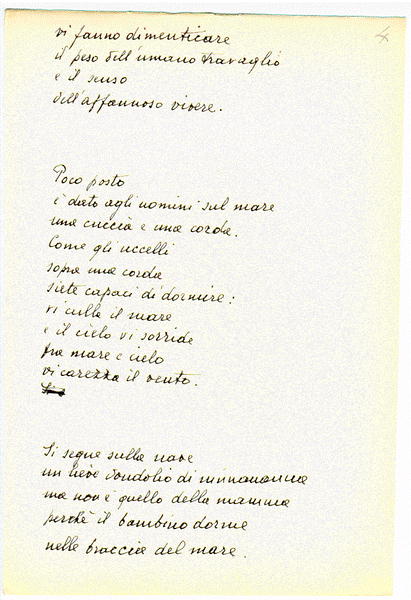 4
vi fanno dimenticare
il peso dell'umano travaglio
e il senso
dell'affannoso vivere.
Poco posto
è dato agli uomini sul mare
una cuccia e una corda.
Come gli uccelli
sopra una corda
siete capaci di dormire:
vi culla il mare
e il cielo vi sorride
fra mare e cielo
vi carezza il vento.
Si segue sulla nave
un lieve dondolio di ninnananna
ma non è quello della mamma
perchè il bambino dorme
nelle braccia del mare.